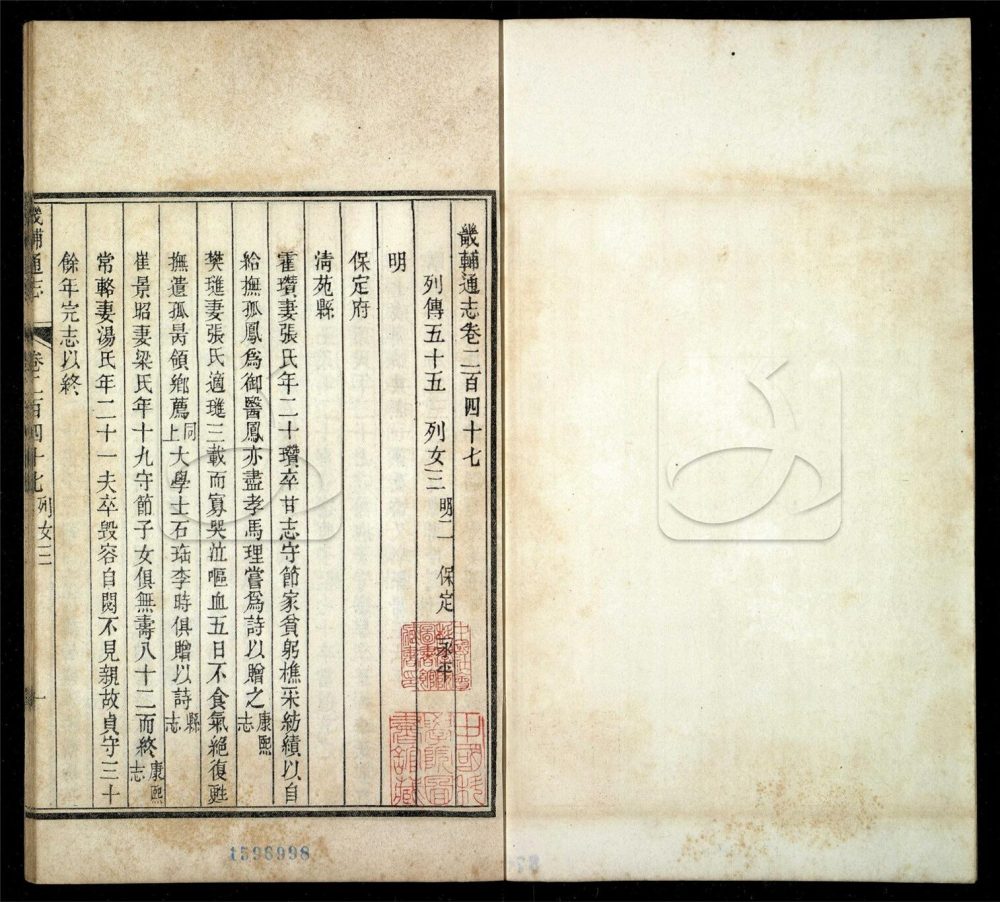 畿輔通志卷二百四十七
列傳五十五 列女三 明二 保定 永平
明
保定府
清苑縣
霍瓚妻張氏年二十瓚卒甘志守節家貧躬樵采紡績以自
給撫孤鳳爲御醫鳳亦盡孝馬理嘗爲詩以贈之康熙志
樊璡妻張氏適璡三載而寡哭泣嘔血五日不食氣絕復甦
撫遺孤昺領鄉薦同上大學士石珤李時俱贈以詩縣志
崔景昭妻梁氏年十九守節子女俱無壽八十二而終康熙志
常輅妻湯氏年二十一夫卒毀容自閟不見親故貞守三十
餘年完志以終
畿輔通志 卷二百四十七 列女三 一
中國科學院圖書館藏
1596998